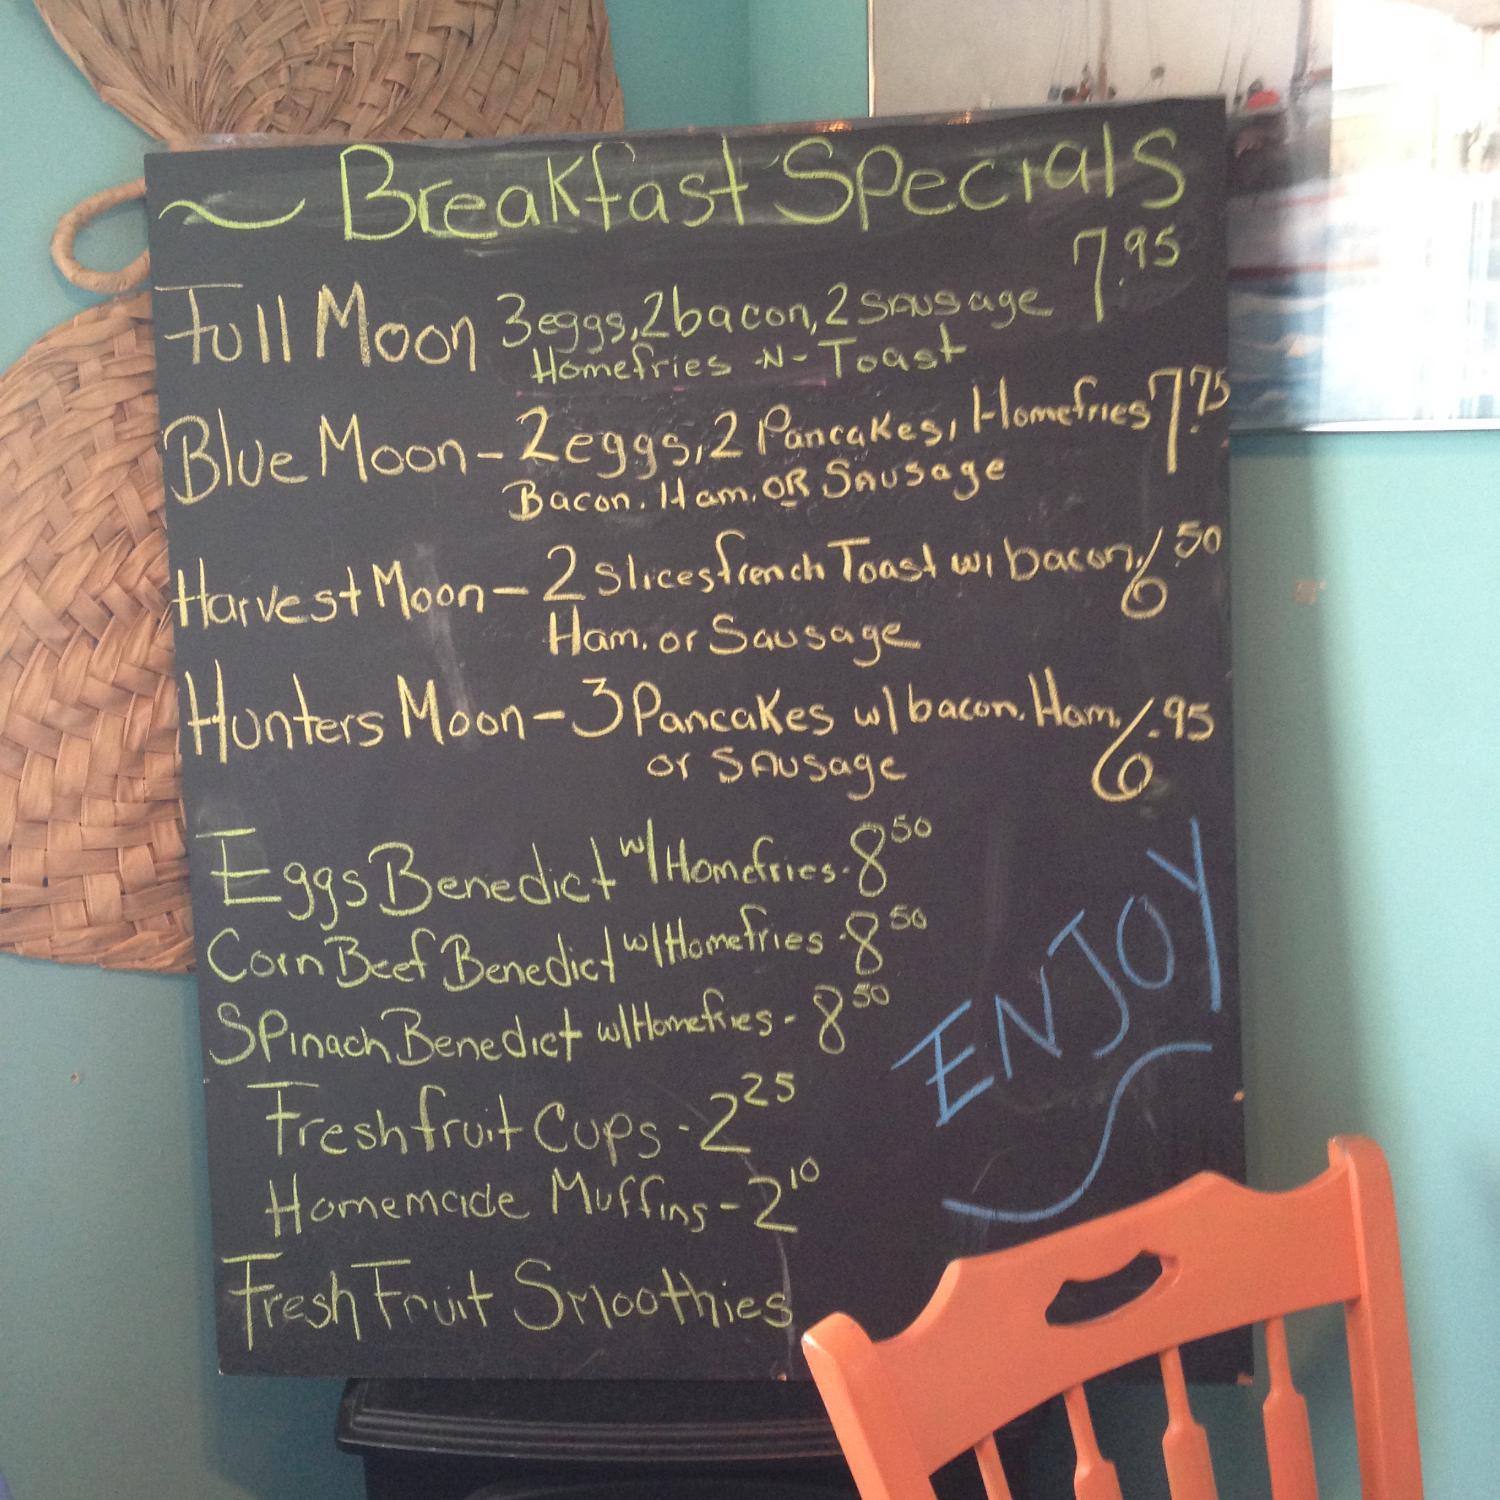 ~ Breakfast Specials
Full Moon 3eggs, 2bacon, 2 Sausage 7.95
Homefries -N- Toast
Blue Moon - 2eggs, 2 Pancakes, Homefries 7.75
Bacon. Ham. OR Sausage
Harvest Moon - 2 Slices french Toast w/ bacon. / 6.50
Ham. or Sausage
Hunters Moon - 3 Pancakes w/ bacon. Ham. / 6.95
or Sausage
Eggs Benedict w/ Homefries - 8 50
Corn Beef Benedict w/ Homefries - 8 50
Spinach Benedict w/ Homefries - 8 50
Fresh fruit Cups - 2 25
Homemade Muffins - 2 10
Fresh Fruit Smoothies
ENJOY